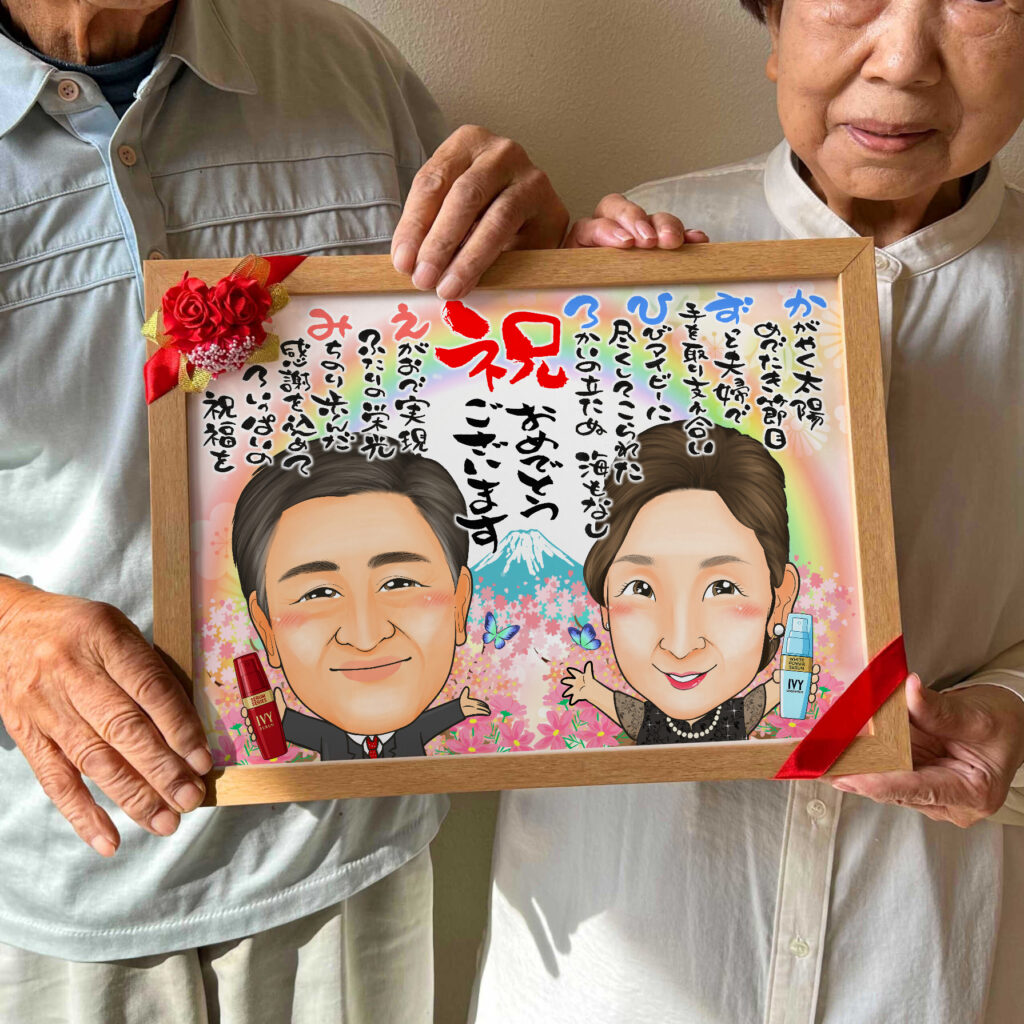 かがやく太陽
めでたき節目
ずっと夫婦で
手を取り支え合い
ひびアイビーに
尽くしてこられた
ろかいの立たぬ 海もなし
祝
おめでとう
ございます
えがおで実現
ふたりの栄光
みちのり歩んだ
感謝を込めて
ろいっぱいの
祝福を
IVY
WHITE
POWER
SERUM
IVY